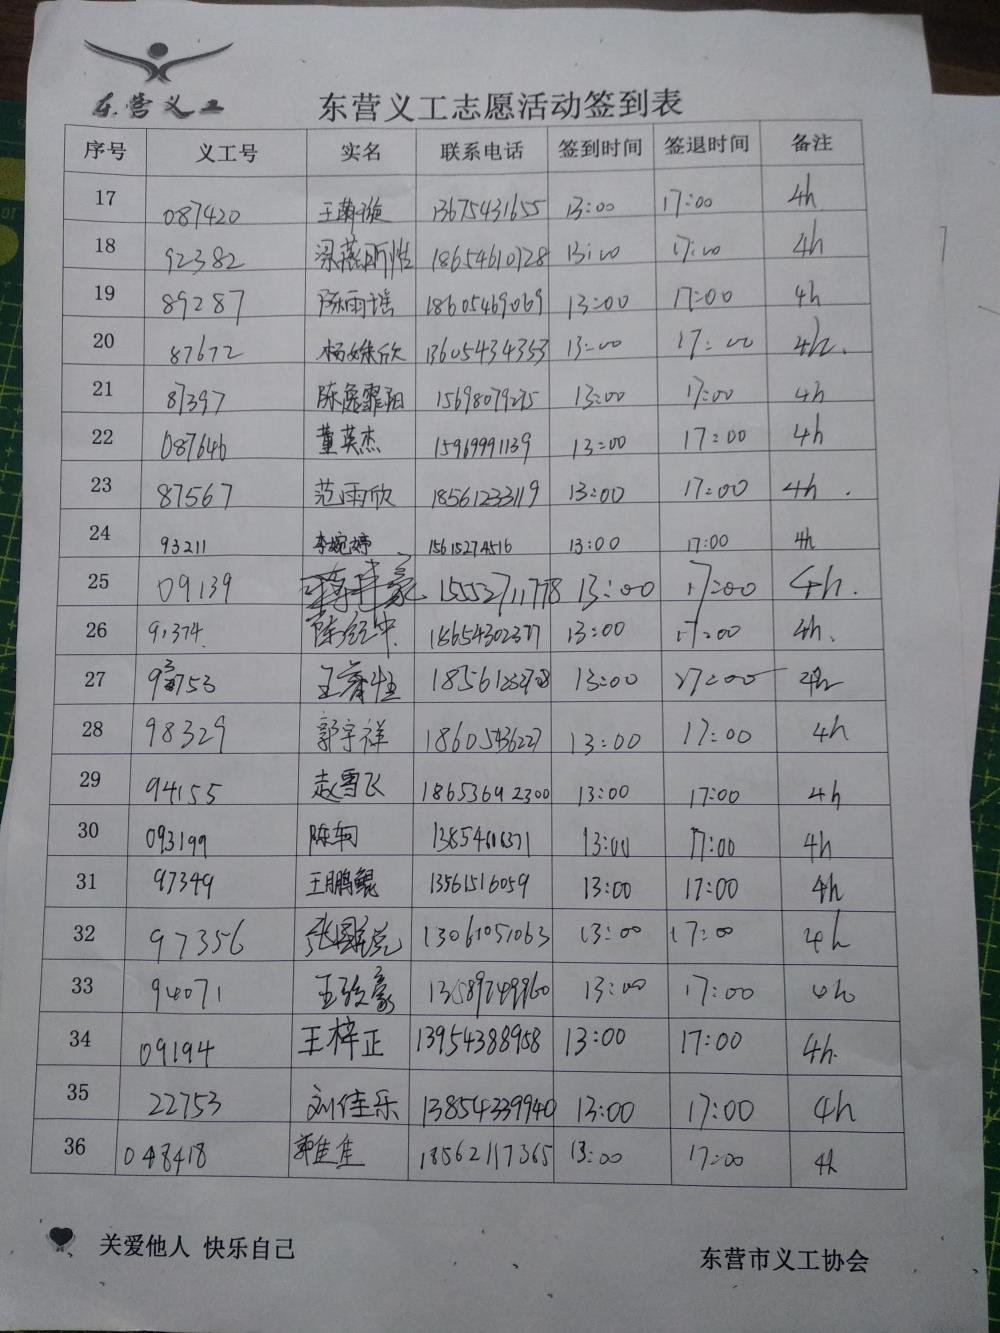 东营义工
东营义工志愿活动签到表
序号 义工号 实名 联系电话 签到时间 签退时间 备注
17 087420 13675431655 13:00 17:00 4h
18 92382 18654610728 13:00 17:00 4h
19 89287 陈雨瑶 18605469069 13:00 17:00 4h
20 87672 杨姝欣 13605434353 13:00 17:00 4h.
21 87397 陈逸霏阳 15698079275 13:00 17:00 4h
22 087646 董英杰 15969991139 13:00 17:00 4h
23 87567 范雨欣 18561233119 13:00 17:00 4h.
24 93211 李婉婷 15615274516 13:00 17:00 4h
25 09139 15552711778 13:00 17:00 4h.
26 91374 18654302377 13:00 17:00 4h.
27 13:00 17:00
28 98329 郭宇祥 18605436227 13:00 17:00 4h
29 94155 赵雪飞 18653692300 13:00 17:00 4h
30 093199 陈轲 13:00 17:00 4h
31 97349 王鹏鲲 13561516059 13:00 17:00 4h
32 97356 13061051063 13:00 17:00 4h
33 94071 13589249960 13:00 17:00 4h
34 09194 王梓正 13954388958 13:00 17:00 4h.
35 22753 刘佳乐 13854339940 13:00 17:00 4h
36 048418 18562117365 13:00 17:00 4h
关爱他人 快乐自己
东营市义工协会